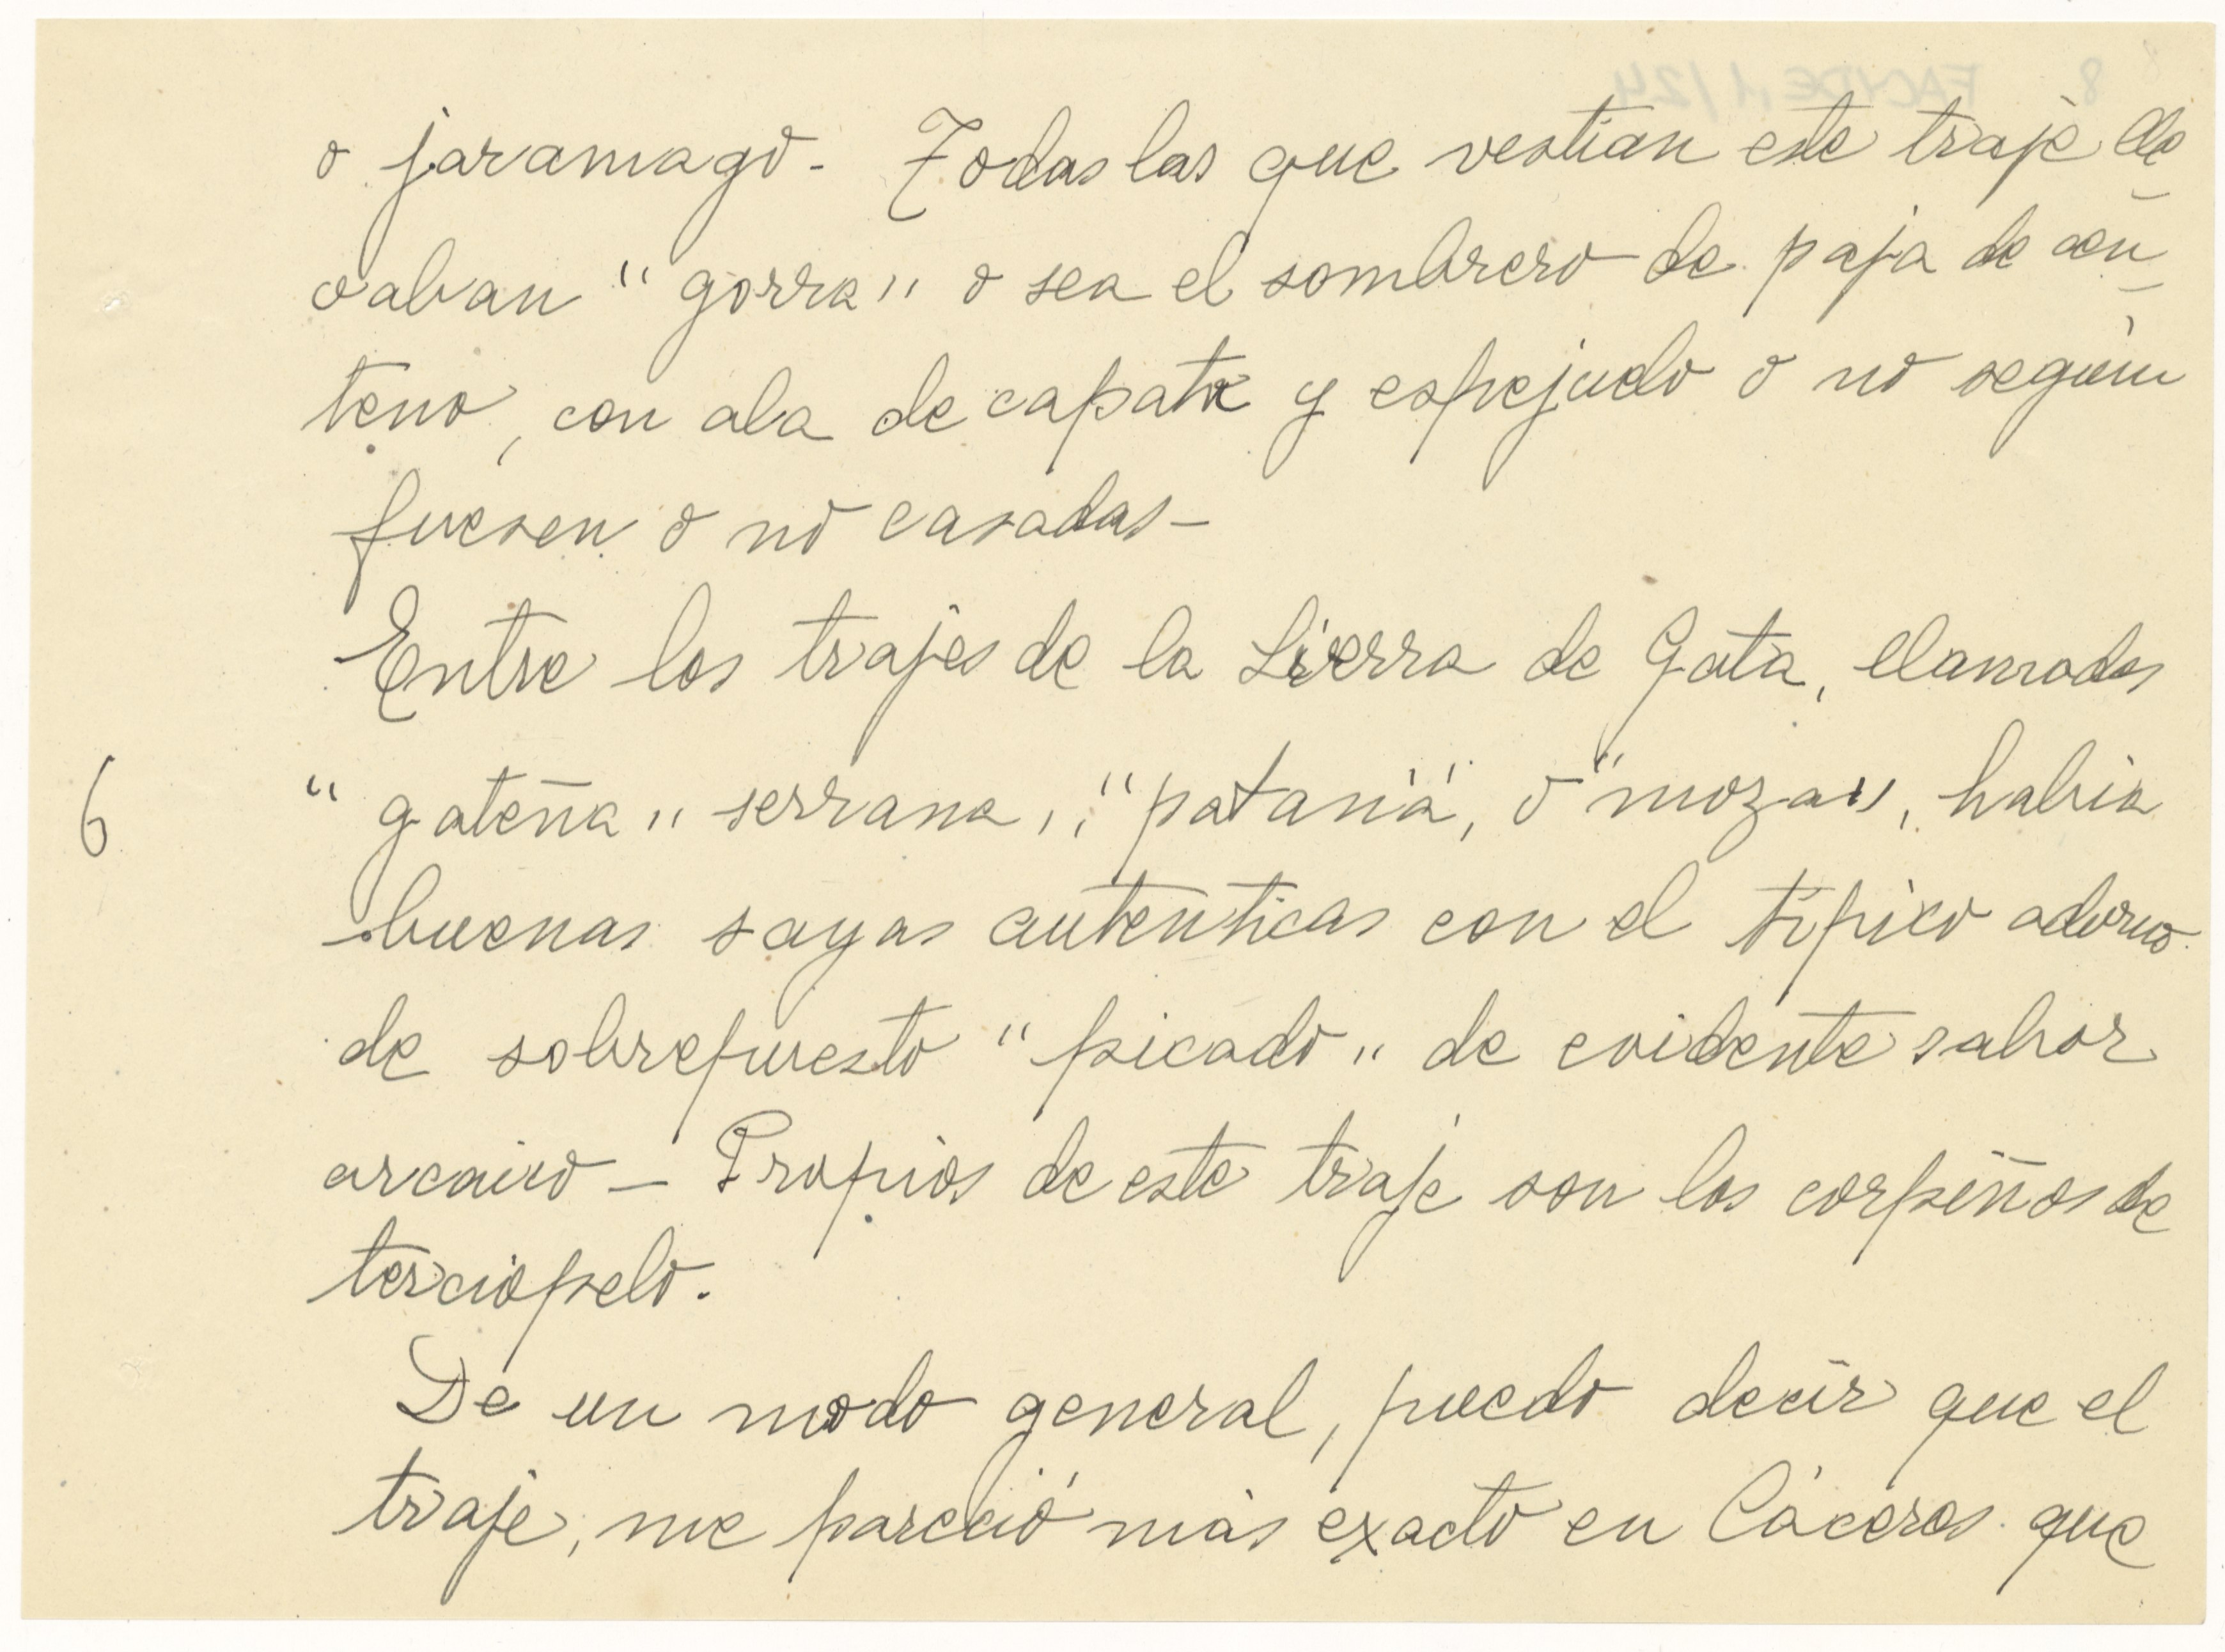 o jaramago- Todas las que vestian este traje lle
vaban "gorra" o sea el sombrero de paja de cen-
teno, con ala de capota y espejuelo o no según
fuesen o no casadas-
Entre los trajes de la Sierra de Gata, llamados
6 "gateña" serrana", "patana", o "moza", habia
buenas sayas autenticas con el típico adorno
de sobrepuesto "picado" de evidente sabor
arcaico- Propios de este traje son los corpiños de
terciopelo.
De un modo general, puedo decir que el
traje, me pareció más exacto en Cáceres que